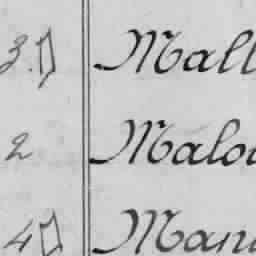 3. Mall
2 Malo
4 Man